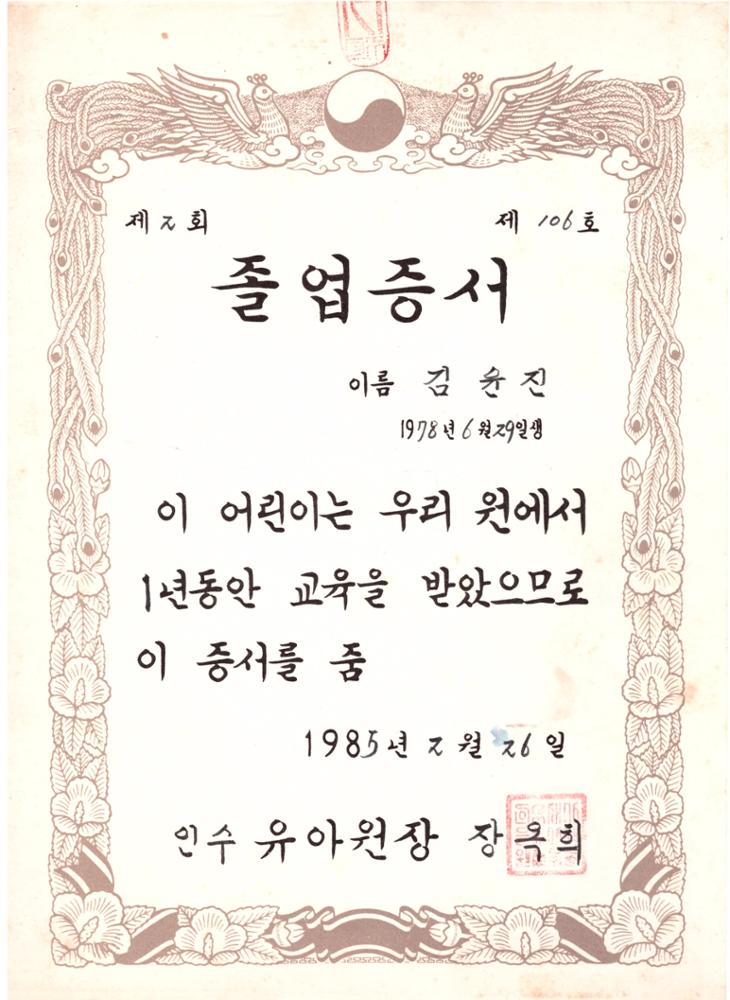 제 2 회 제 106 호
졸업증서
이름 김윤진
1978년 6월 29일생
이 어린이는 우리 원에서
1년동안 교육을 받았으므로
이 증서를 줌
1985년 2월 26일
인수 유아원장 장옥희